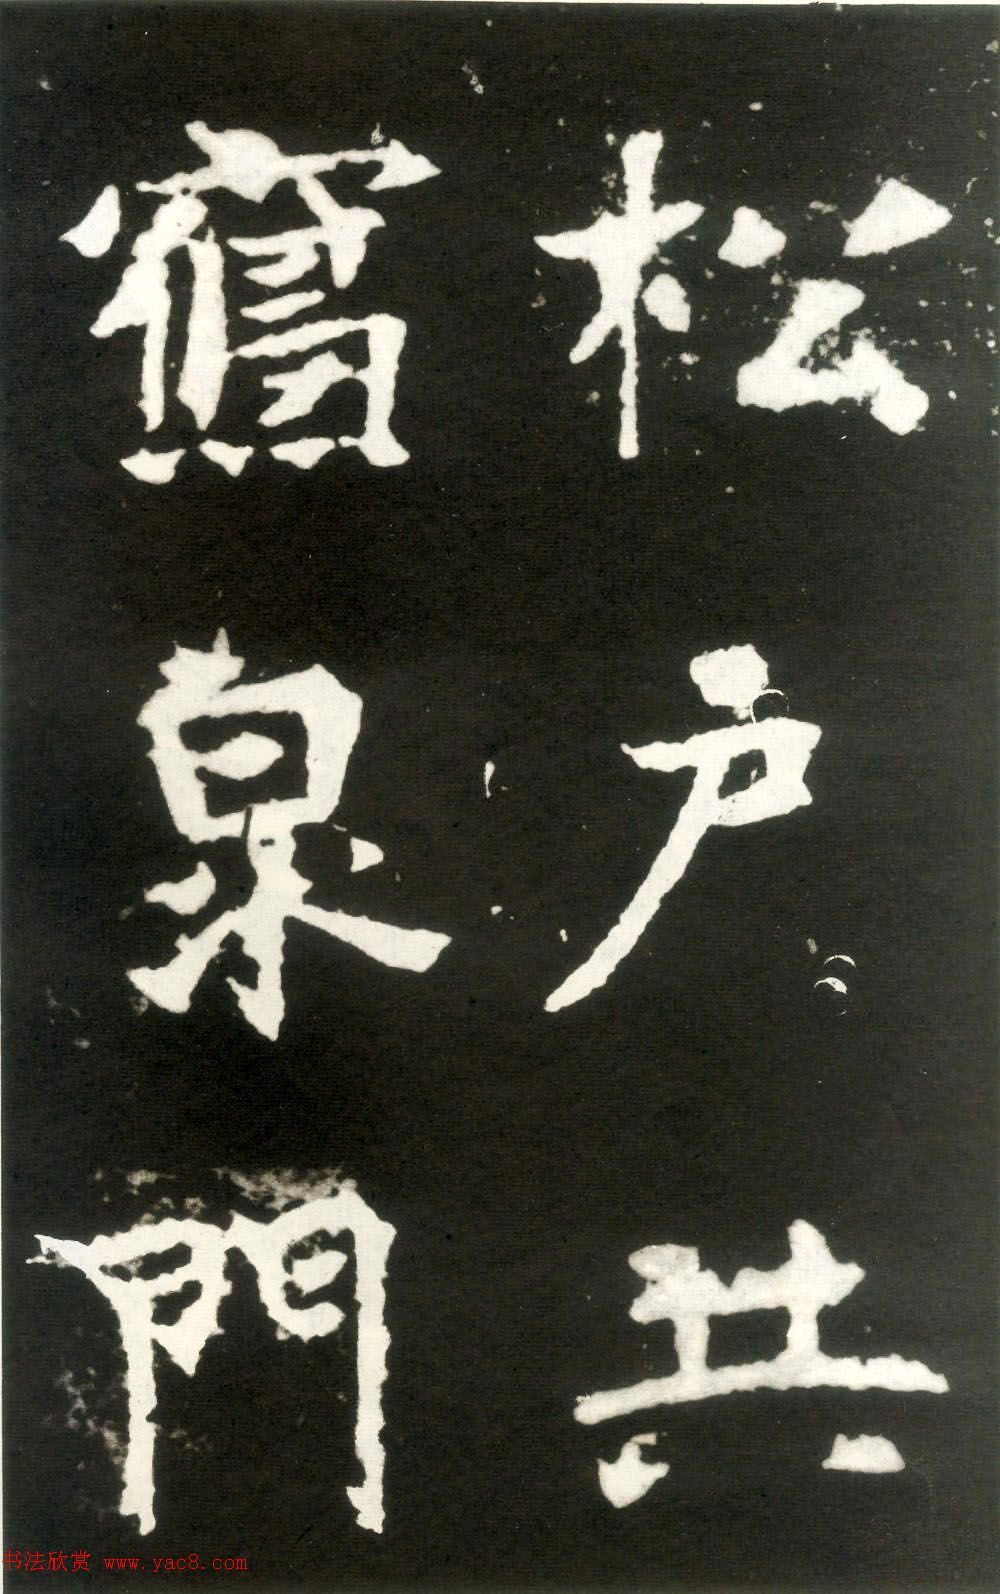 松户共
泉門
书法欣赏 www.yac8.com